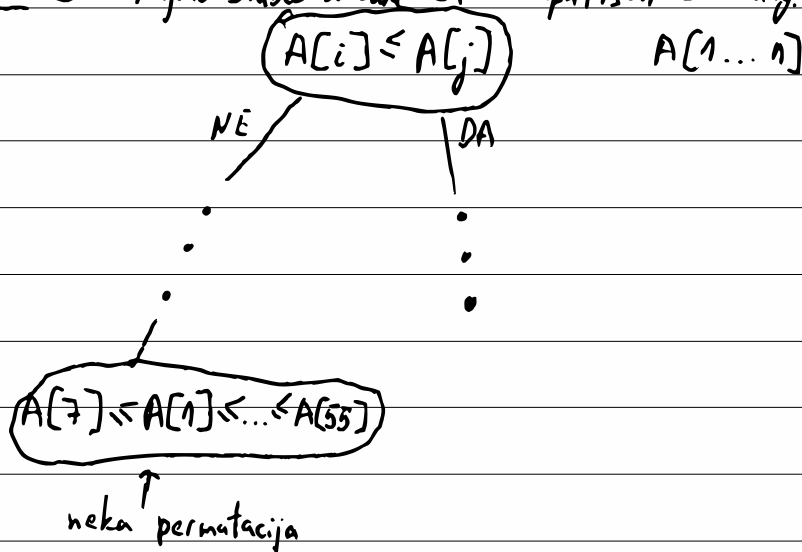 A[i] ≤ A[j]
A[1... n]
NE
DA
A[7] ≤ A[1] ≤ ... ≤ A[55]
neka permutacija